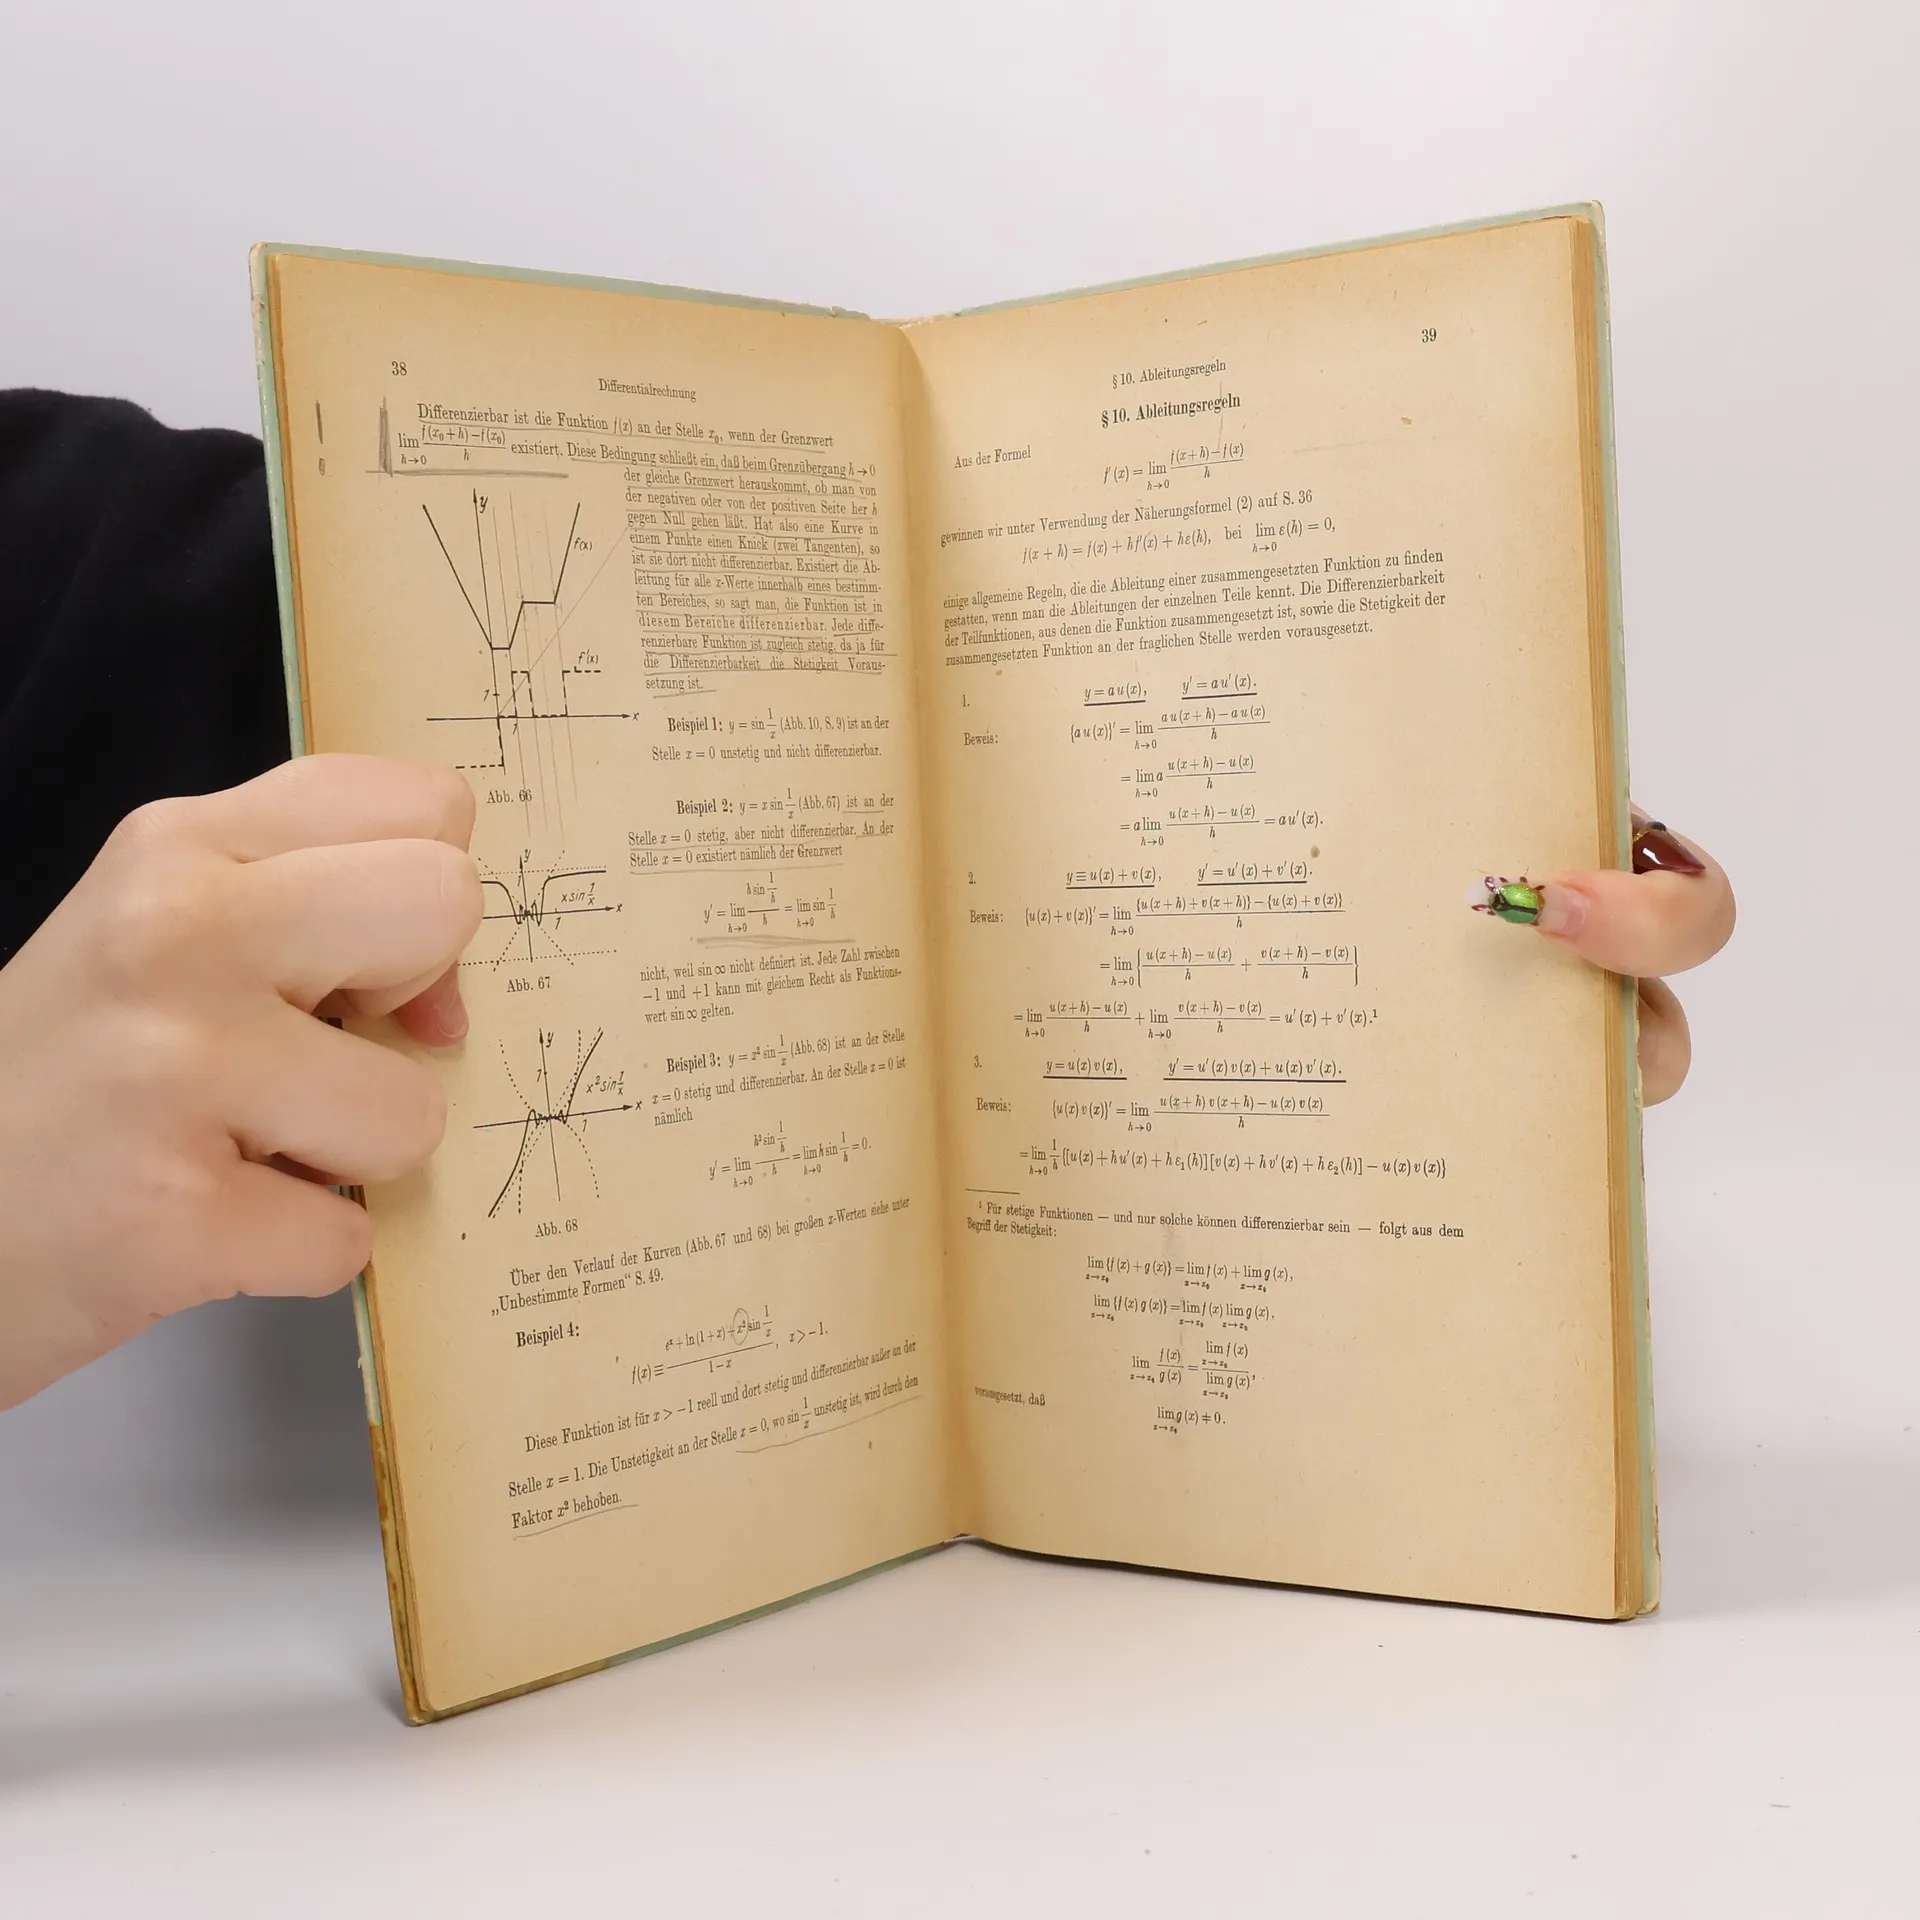 38
Differentialrechnung
Differenzierbar ist die Funktion f(x) an der Stelle x₀, wenn der Grenzwert
lim h→0 (f(x₀+h)−f(x₀))/h existiert. Diese Bedingung schließt ein, daß beim Grenzübergang h→0
der gleiche Grenzwert herauskommt, ob man von
der negativen oder von der positiven Seite her h
gegen Null gehen läßt. Hat also eine Kurve in
einem Punkte einen Knick (zwei Tangenten), so
ist sie dort nicht differenzierbar. Existiert die Ab-
leitung für alle x-Werte innerhalb eines bestimm-
ten Bereiches, so sagt man, die Funktion ist in
diesem Bereiche differenzierbar. Jede diffe-
renzierbare Funktion ist zugleich stetig, da ja für
die Differenzierbarkeit die Stetigkeit Voraus-
setzung ist.
y
f(x)
f′(x)
1
x
1
Abb. 66
Beispiel 1: y = sin 1/x (Abb. 10, S. 9) ist an der
Stelle x = 0 unstetig und nicht differenzierbar.
Beispiel 2: y = x sin 1/x (Abb. 67) ist an der
Stelle x = 0 stetig, aber nicht differenzierbar. An der
Stelle x = 0 existiert nämlich der Grenzwert
y′ = lim h→0 (h sin 1/h)/h = lim h→0 sin 1/h
y
1
x sin 1/x
x
1
Abb. 67
nicht, weil sin ∞ nicht definiert ist. Jede Zahl zwischen
−1 und +1 kann mit gleichem Recht als Funktions-
wert sin ∞ gelten.
Beispiel 3: y = x² sin 1/x (Abb. 68) ist an der Stelle
x = 0 stetig und differenzierbar. An der Stelle x = 0 ist
nämlich
y′ = lim h→0 (h² sin 1/h)/h = lim h→0 h sin 1/h = 0.
y
1
x² sin 1/x
x
1
Abb. 68
Über den Verlauf der Kurven (Abb. 67 und 68) bei großen x-Werten siehe unter
„Unbestimmte Formen“ S. 49.
Beispiel 4:
f(x) ≡ (eˣ + ln(1+x) + x² sin 1/x)/(1−x), x > −1.
Diese Funktion ist für x > −1 reell und dort stetig und differenzierbar außer an der
Stelle x = 1. Die Unstetigkeit an der Stelle x = 0, wo sin 1/x unstetig ist, wird durch den
Faktor x² behoben.
39
§ 10. Ableitungsregeln
§ 10. Ableitungsregeln
Aus der Formel
f′(x) = lim h→0 (f(x+h)−f(x))/h
gewinnen wir unter Verwendung der Näherungsformel (2) auf S. 36
f(x + h) = f(x) + hf′(x) + hε(h), bei lim h→0 ε(h) = 0,
einige allgemeine Regeln, die die Ableitung einer zusammengesetzten Funktion zu finden
gestatten, wenn man die Ableitungen der einzelnen Teile kennt. Die Differenzierbarkeit
der Teilfunktionen, aus denen die Funktion zusammengesetzt ist, sowie die Stetigkeit der
zusammengesetzten Funktion an der fraglichen Stelle werden vorausgesetzt.
1. y = au(x), y′ = au′(x).
Beweis: {au(x)}′ = lim h→0 (au(x+h)−au(x))/h
= lim h→0 a (u(x+h)−u(x))/h
= a lim h→0 (u(x+h)−u(x))/h = au′(x).
2. y ≡ u(x) + v(x), y′ = u′(x) + v′(x).
Beweis: {u(x)+v(x)}′ = lim h→0 ({u(x+h)+v(x+h)}−{u(x)+v(x)})/h
= lim h→0 {(u(x+h)−u(x))/h + (v(x+h)−v(x))/h}
= lim h→0 (u(x+h)−u(x))/h + lim h→0 (v(x+h)−v(x))/h = u′(x) + v′(x).¹
3. y = u(x) v(x), y′ = u′(x) v(x) + u(x) v′(x).
Beweis: {u(x) v(x)}′ = lim h→0 (u(x+h) v(x+h)−u(x) v(x))/h
= lim h→0 1/h {[u(x)+hu′(x)+hε₁(h)][v(x)+hv′(x)+hε₂(h)]−u(x)v(x)}
¹ Für stetige Funktionen — und nur solche können differenzierbar sein — folgt aus dem
Begriff der Stetigkeit:
lim x→x₀ {f(x)+g(x)} = lim x→x₀ f(x) + lim x→x₀ g(x),
lim x→x₀ {f(x) g(x)} = lim x→x₀ f(x) lim x→x₀ g(x),
lim x→x₀ f(x)/g(x) = lim x→x₀ f(x) / lim x→x₀ g(x),
vorausgesetzt, daß
lim x→x₀ g(x) ≠ 0.